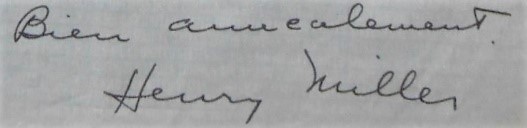 Bien amicalement.
Henry Miller